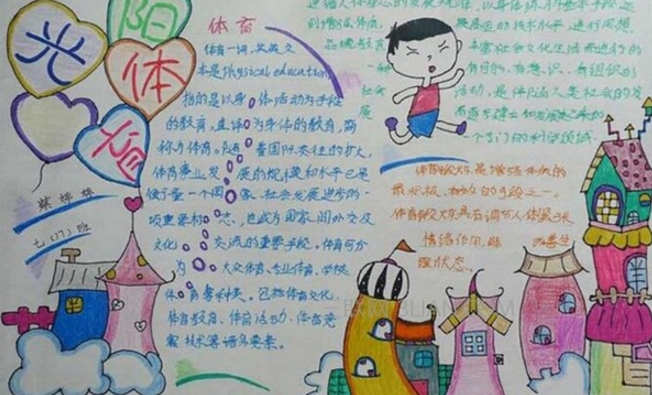 阳
光
体
育
体育
体育一词,其英文
本是physical education,
指的是以身体活动为手段
的教育,直译为身体的教育,简
称为体育。随着国际交往的扩大,
体育事业发展的规模和水平已是
衡量一个国家、社会发展进步的一
项重要标志,也成为国家间外交及
文化交流的重要手段。体育可分
为大众体育、专业体育、学校
体育等种类。包括体育文化、
体育教育、体育活动、体育竞
赛
技术等诸多要素。
七(17)班
提高运动技术水平、进行思想
品德教育
丰富社会文化生活而进行的
一种
有目的、有意识、有组织的
社会
活动,是伴随人类社会的发
展
而逐步建立和发展起来的
一个专门的科学领域
体育锻炼是增强体质的
最积极、有效的手段之一。
体育锻炼具有调节人体紧张
情绪作用,能
改善生
理状态。